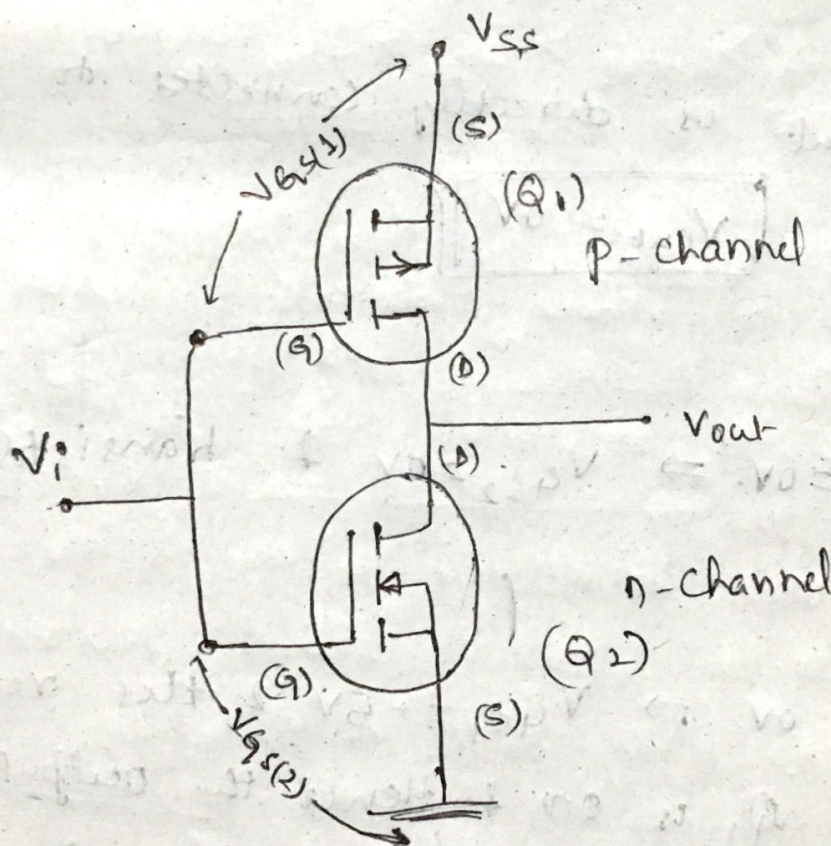 VSS
(S)
VGS(1)
(Q1)
p-channel
(G)
(D)
Vout
(D)
Vi
n-channel
(Q2)
(G)
(S)
VGS(2)